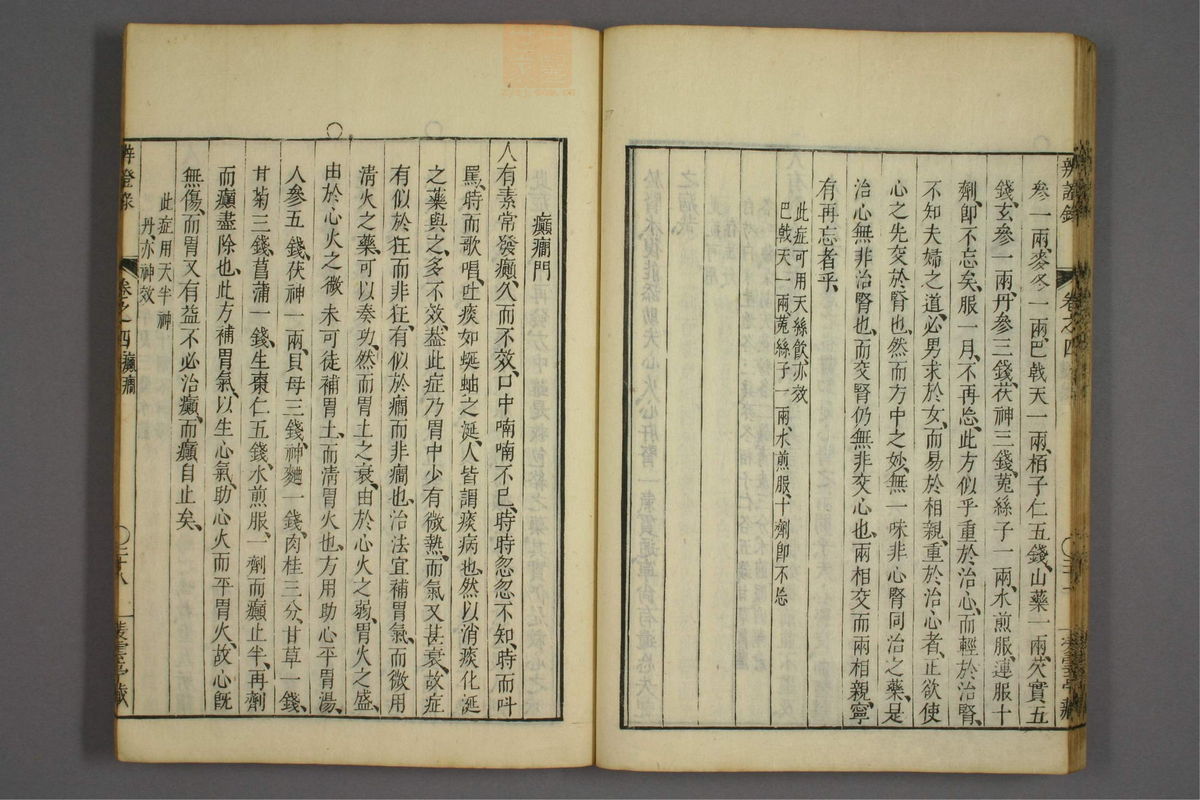 參一兩、麥冬一兩、巴戟天一兩、栢子仁五錢、山藥一兩、芡實五
錢、玄參一兩、丹參三錢、茯神三錢、菟絲子一兩、水煎服、連服十
劑、卽不忘矣、服一月、不再忘、此方似乎重於治心、而輕於治腎、
不知夫婦之道、必男求於女、而易於相親、重於治心者、正欲使
心之先交於腎也、然而方中之妙、無一味非心腎同治之藥、是
治心無非治腎也、而交腎仍無非交心也、兩相交而兩相親、寧
有再忘者乎、
此症可用天絲飲、亦效
巴戟天一兩、菟絲子一兩、水煎服、十劑卽不忘
辨證錄 卷之四
癲癎門
人有素常發癲、久而不效、口中喃喃不已、時時忽忽不知、時而呌
罵、時而歌唱、吐痰如蜒蚰之涎、人皆謂痰病也、然以消痰化涎
之藥與之、多不效、葢此症乃胃中少有微熱、而氣又甚衰、故症
有似於狂而非狂、有似於癎而非癎也、治法宜補胃氣、而微用
清火之藥、可以奏功、然而胃土之衰、由於心火之弱、胃火之盛、
由於心火之微、未可徒補胃土、而清胃火也、方用助心平胃湯、
人參五錢、茯神一兩、貝母三錢、神麯一錢、肉桂三分、甘草一錢、
甘菊三錢、菖蒲一錢、生棗仁五錢、水煎服、一劑而癲止半、再劑
而癲盡除也、此方補胃氣、以生心氣、助心火而平胃火、故心旣
無傷、而胃又有益、不必治癲、而癲自止矣、
此症用天半神
丹亦神效
辨證錄 卷之四 癲癎 三十八